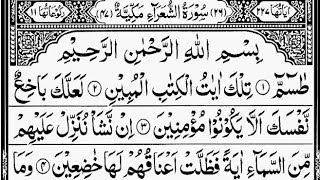 اٰیَاتُهَا ۲۲۷ (۲۶) سُوْرَةُ الشُّعَرَآءِ مَكِّيَّةٌ (۴۷) رُكُوْعَاتُهَا ۱۱
بِسْمِ اللّٰهِ الرَّحْمٰنِ الرَّحِيْمِ
طٰسٓمّٓ ۱ تِلْكَ اٰيٰتُ الْكِتٰبِ الْمُبِيْنِ ۲ لَعَلَّكَ بَاخِعٌ
نَّفْسَكَ اَلَّا يَكُوْنُوْا مُؤْمِنِيْنَ ۳ اِنْ نَّشَاْ نُنَزِّلْ عَلَيْهِمْ
مِّنَ السَّمَآءِ اٰيَةً فَظَلَّتْ اَعْنَاقُهُمْ لَهَا خٰضِعِيْنَ ۴ وَمَا